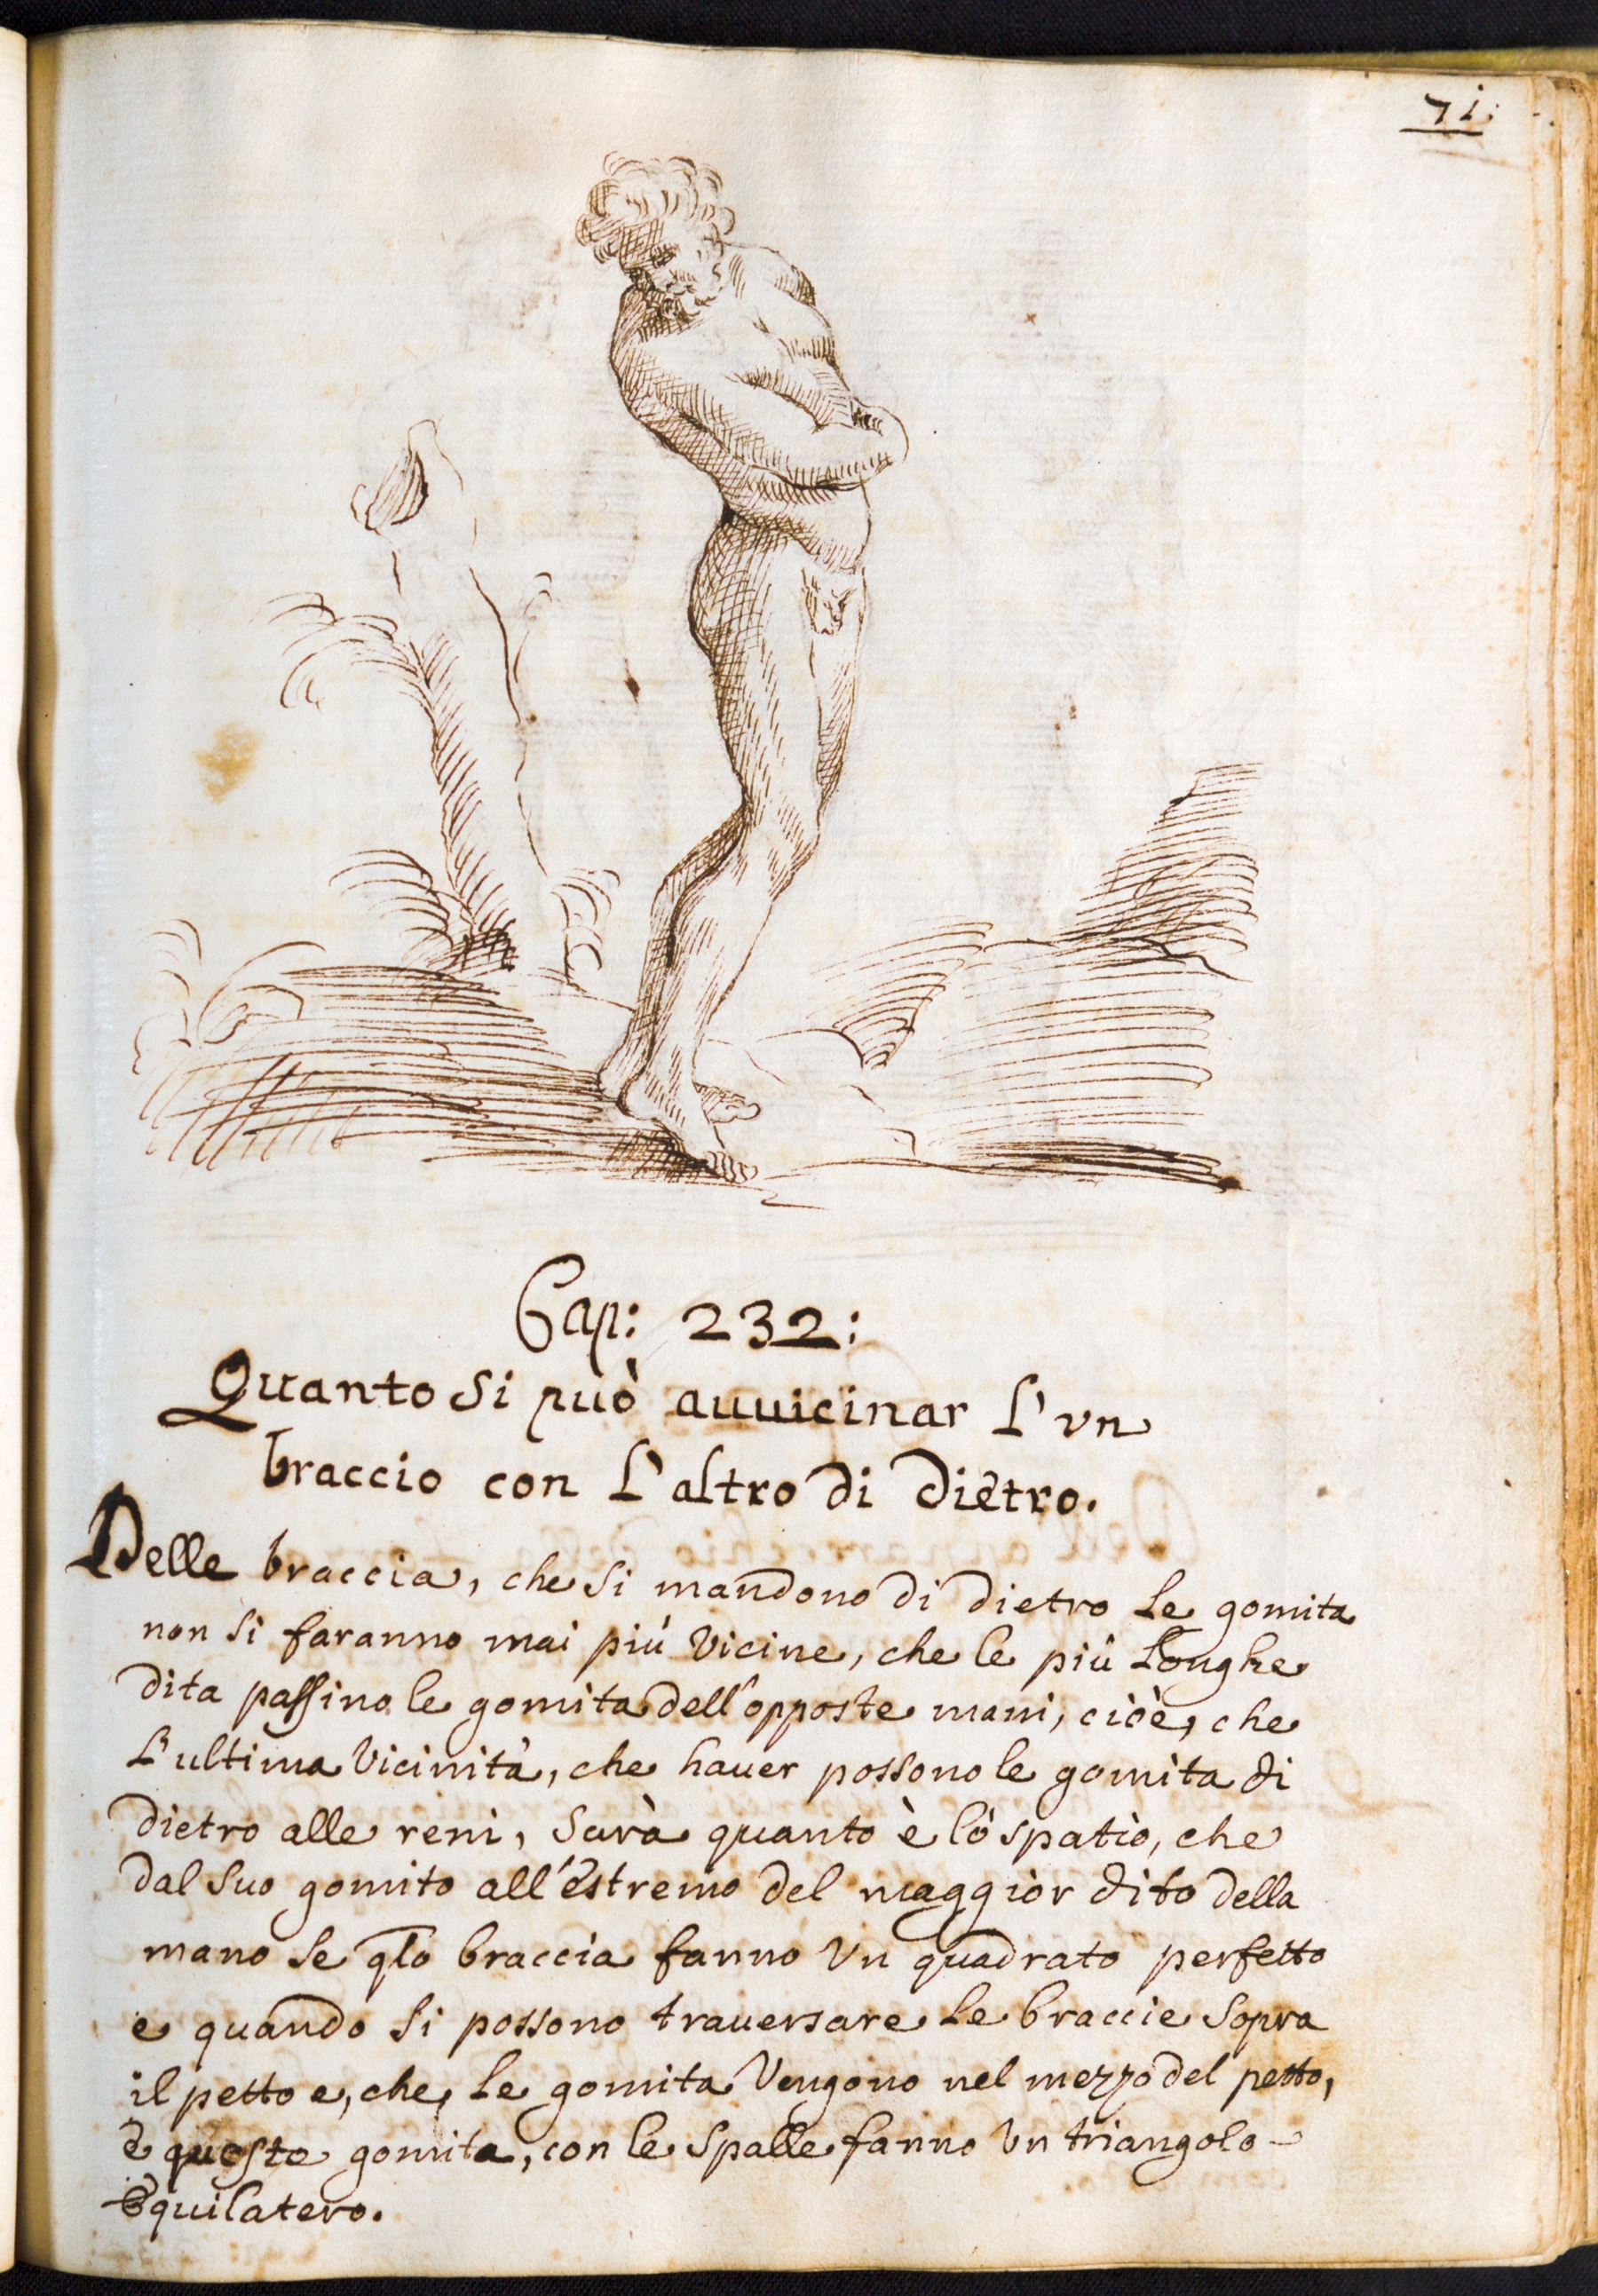 71:
Cap: 232:
Quanto si può auuicinar L'vn
braccio con L'altro di dietro.
Delle braccia, che si mandono di dietro le gomita
non si faranno mai più vicine, che le più longhe
dita passino le gomita dell'opposte mani, cioè, che
L'ultima vicinità, che hauer possono le gomita di
dietro alle reni, sarà quanto è lo spatio, che
dal suo gomito all'estremo del maggior dito della
mano le qlo braccia fanno vn quadrato perfetto
e quando si possono trauersare le braccie sopra
il petto e, che, le gomita vengono nel mezzo del petto,
e queste gomita, con le spalle fanno vn triangolo -
Equilatero.